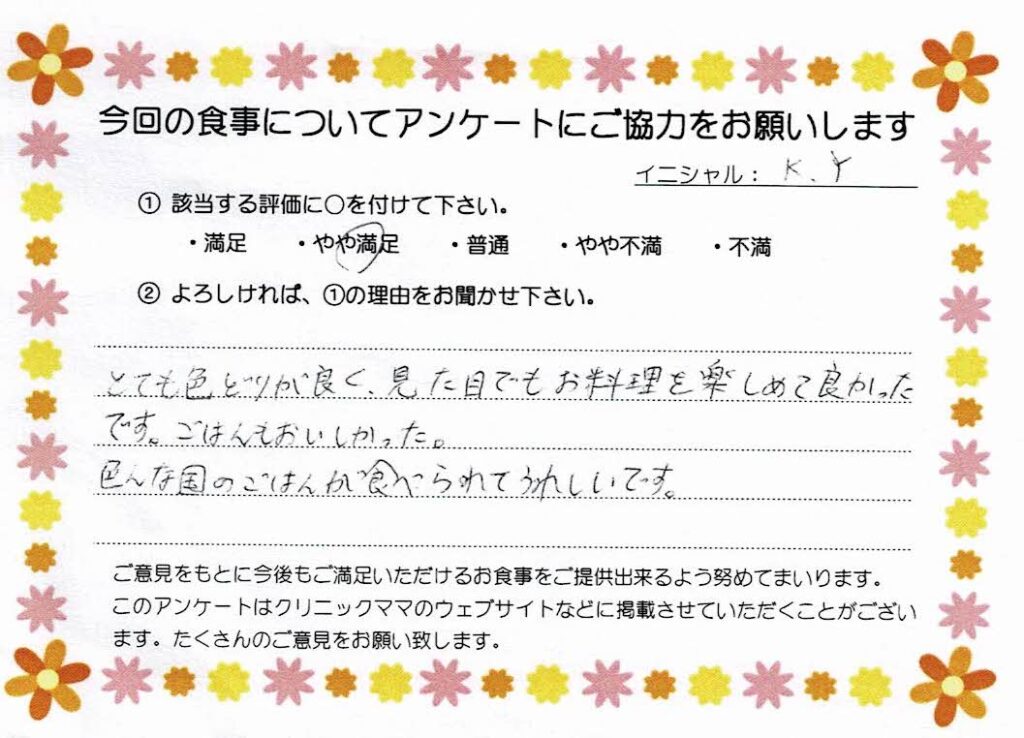 今回の食事についてアンケートにご協力をお願いします
イニシャル： K.Y
① 該当する評価に○を付けて下さい。
・満足 ・やや満足 ・普通 ・やや不満 ・不満
② よろしければ、①の理由をお聞かせ下さい。
とても色どりが良く、見た目でもお料理を楽しめて良かった
です。ごはんもおいしかった。
色んな国のごはんが食べられてうれしいです。
ご意見をもとに今後もご満足いただけるお食事をご提供出来るよう努めてまいります。
このアンケートはクリニックママのウェブサイトなどに掲載させていただくことがござい
ます。たくさんのご意見をお願い致します。